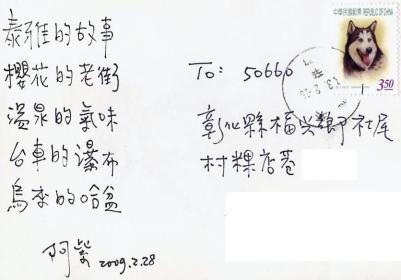 泰雅的故事
櫻花的老街
溫泉的氣味
台車的瀑布
烏來的哈盆
阿紫 2009.2.28
中華民國郵票 REPUBLIC OF CHINA
350
To: 50660
彰化縣福興鄉社尾
村粿店巷